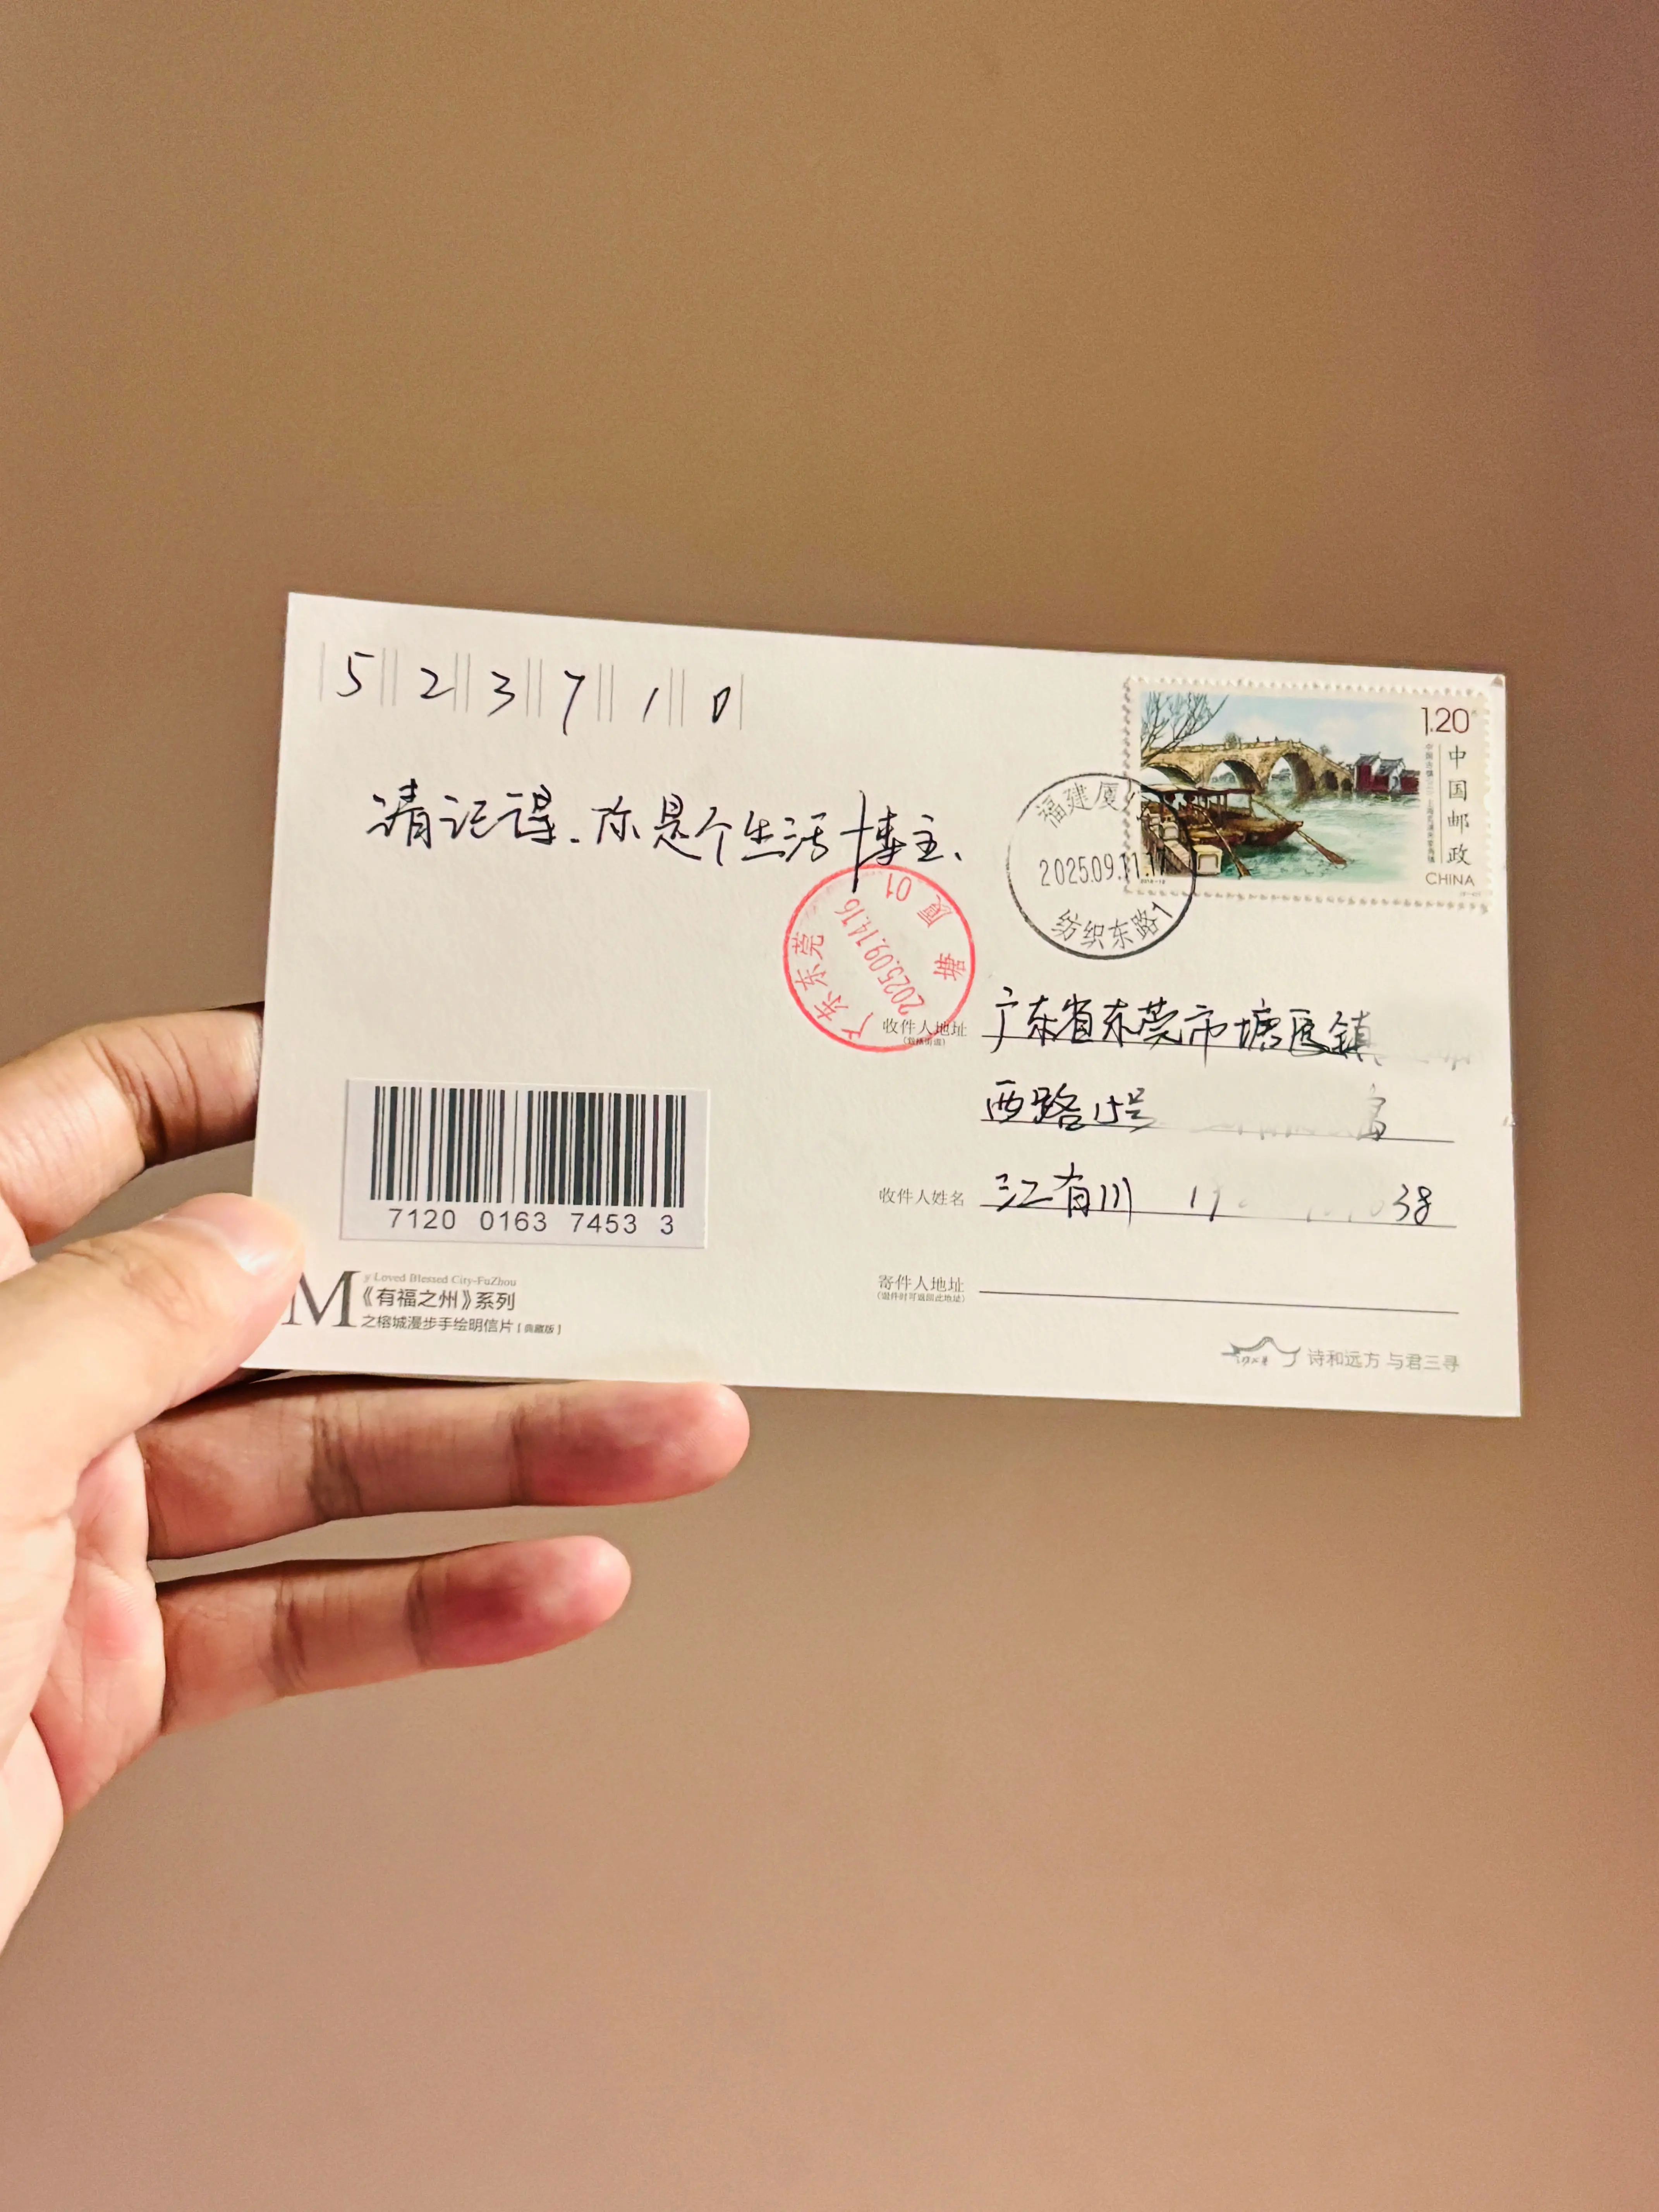 523710
1.20元
中国邮政
CHINA
请记得、你是个生活博主、
福建厦
2025.09.11.17
纺织东路1
广东东莞
2025.09.14.16
塘厦01
收件人地址
广东省东莞市塘厦镇
西路15号
收件人姓名
江有川 1 38
7120 0163 7453 3
寄件人地址
(退件时可退回此地址)
My Loved Blessed City-FuZhou
《有福之州》系列
之榕城漫步手绘明信片【典藏版】
诗和远方 与君三寻